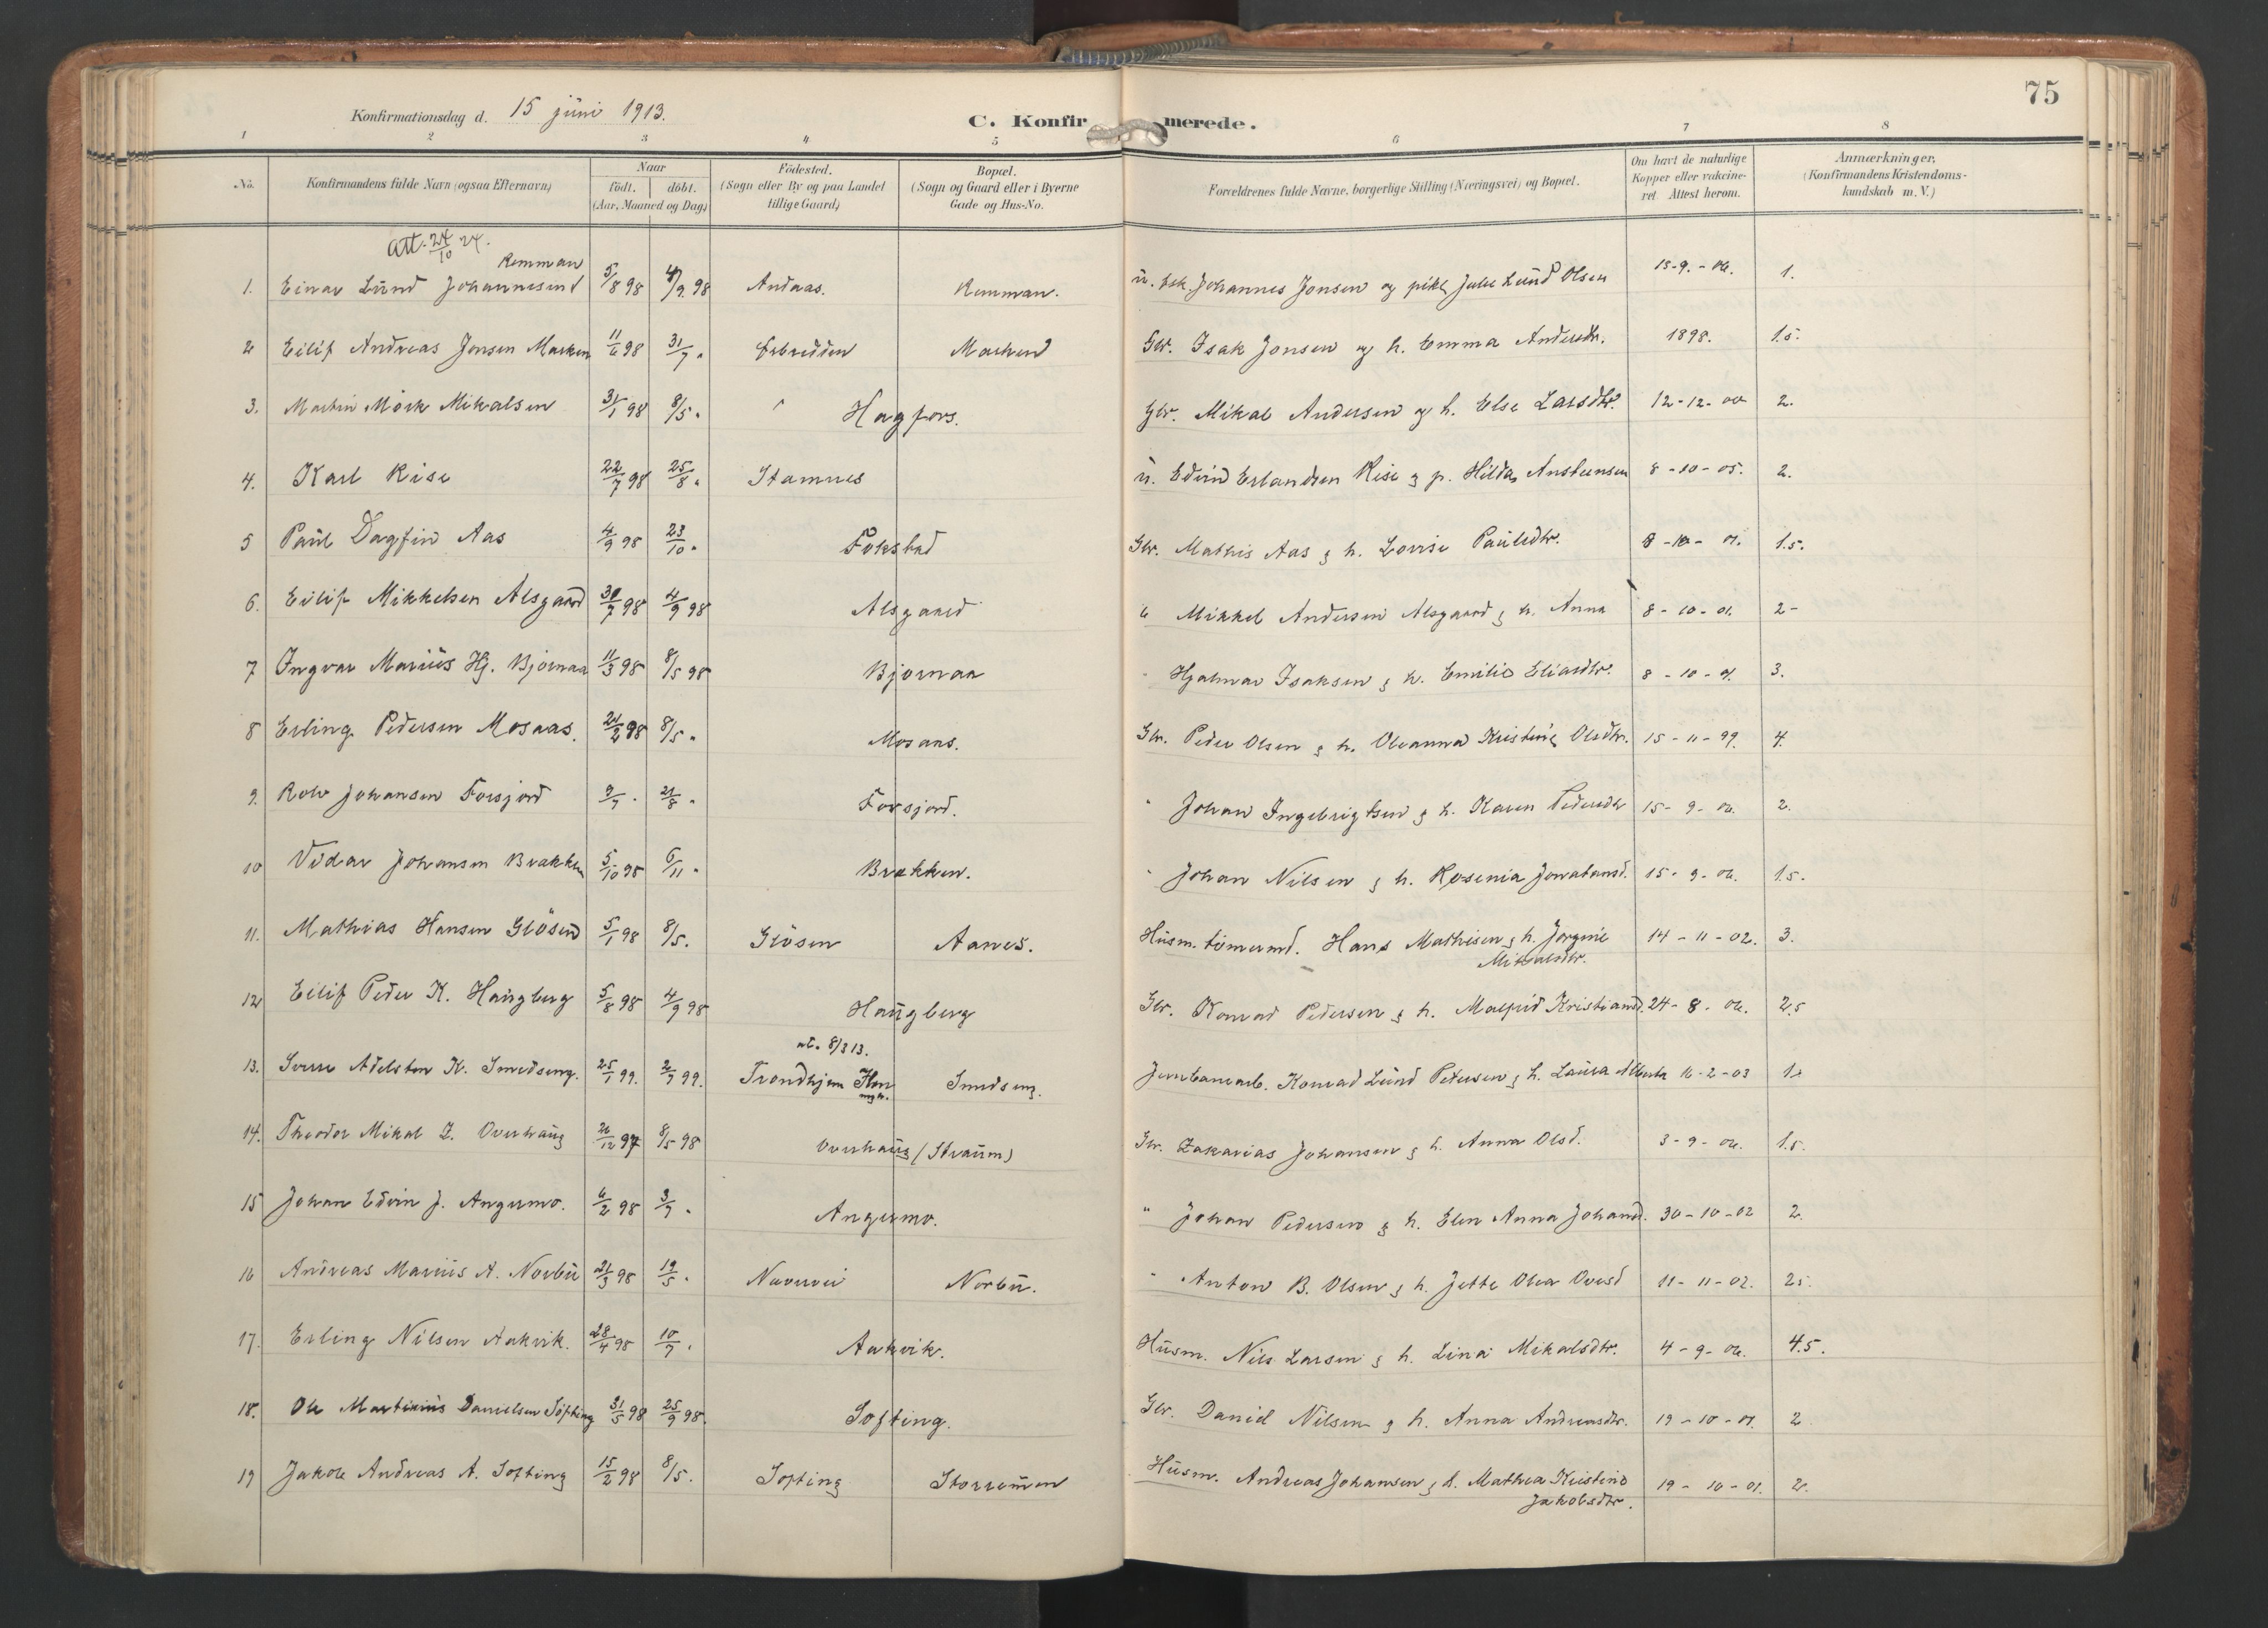 75
Konfirmationsdag d. 15 juni 1913.
C. Konfirmerede.
1 2 3 4 5 6 7 8
No. Konfirmandens fulde Navn (ogsaa Efternavn) Naar födt. döbt. (Aar, Maaned og Dag) Födested. (Sogn eller By og paa Landet tillige Gaard) Bopæl. (Sogn og Gaard eller i Byerne Gade og Hus-No. Forældrenes fulde Navne, borgerlige Stilling (Næringsvei) og Bopæl. Om havt de naturlige Kopper eller vakcineret Attest herom. Anmærkninger, (Konfirmandens Kristendomskundskab m. V.)
att. 24/10 24.
Remman
1. Einar Lund Johannesen 5/8 98 4/9 98 Andaas. Remman. u. Johannes Jonsen og pike Julie Lund Olsen 15-9.-06. 1.
2 Eilif Andreas Jonsen Marken 11/6 98 31/7 " Marken Gbr. Isak Jonsen og h. Emma Andersdtr. 1898. 1.5.
3. Martin Mörk Mikalsen 31/1 98 8/5 " Hagfors. Gbr. Mikal Andersen og h. Else Larsdtr. 12-12-00 2.
4. Karl Rise 22/7 98 25/8 " Stamnes u. Edvin Erlandsen Rise & p. Hilda Anstensen 8-10-05. 2.
5 Paul Dagfin Aas 4/9 98 23/10 " Fokstad Gbr. Mathis Aas & h. Lovise Paulsdtr. 8-10-01. 1.5.
6. Eilif Mikkelsen Alsgaard 31/7 98 4/9 98 Alsgaard " Mikkel Andersen Alsgaard & h. Anna 8-10-01. 2-
7 Ingvar Marius Hj. Bjornaa 11/3 98 8/5 98 Bjornaa " Hjalmar Isaksen & h. Emilie Eliasdtr. 8-10-01. 3.
8 Erling Pedersen Mosaas. 21/2 98 8/5 " Mosaas. Gbr. Peder Olsen & h. Oleanna Kristine Olsdtr. 15-11-99. 4.
9. Rolv Johansen Forsjord 9/7 " 21/8 " Forsjord. " Johan Ingebrigtsen & h. Karen Pedersdtr 15-9-06. 2.
10 Vidar Johansen Brakken 5/10 98 6/11 " Brakken. " Johan Nilsen & h. Rosenia Jonatansd. 15-9-06. 1.5.
11. Mathias Hansen Glösen 5/1 98 8/5. Glösen Aanes. Husm. tömmermd. Hans Mathisen & h. Jorgine 14-11-02. 3.
Mikalsdtr.
12 Eilif Peder K. Haugberg 5/8 98 4/9 98 Haugberg Gbr. Konrad Pedersen & h. Kristiansd. 24-8-06. 2,5
at. 8/3 13.
13. Sverre Adelsten K. Smedseng. 25/1 99. 2/7 99. Trondhjem Smedseng. Konrad Lund Petersen & h. Laura Alberta 16-2-03 1.
14. Theodor Mikal Z. Overhaug 21/12 97 8/5 98 Overhaug (Straum) Gbr. Zakarias Johansen & h. Anna Olsd. 3-9-06. 1.5.
15 Johan Edvin J. Angermo. 6/2 98 3/7 " Angermo. " Johan Pedersen & h. Elen Anna Johansd. 30-10-02 2.
16 Andreas Marius A. Norbu 21/3 98 19/5 " Norbu. " Anton B. Olsen & h. Jette Olea Ovesd 11-11-02. 25.
17. Erling Nilsen Aakvik. 28/4 98 10/7 " Aakvik. Husm. Nils Larsen & h. Lina Mikalsdtr. 4-9-06. 4.5.
18. Ole Martinius Danielsen Söfting 31/5 98 25/9 98. Softing. Gbr. Daniel Nilsen & h. Anna Andreasdtr. 19-10-01. 2
19 Jakob Andreas A. Softing 15/2 98 8/5. Softing Husm. Andreas Johansen & h. Mathea Kristine 19-10-01. 2.
Jakobsdtr.